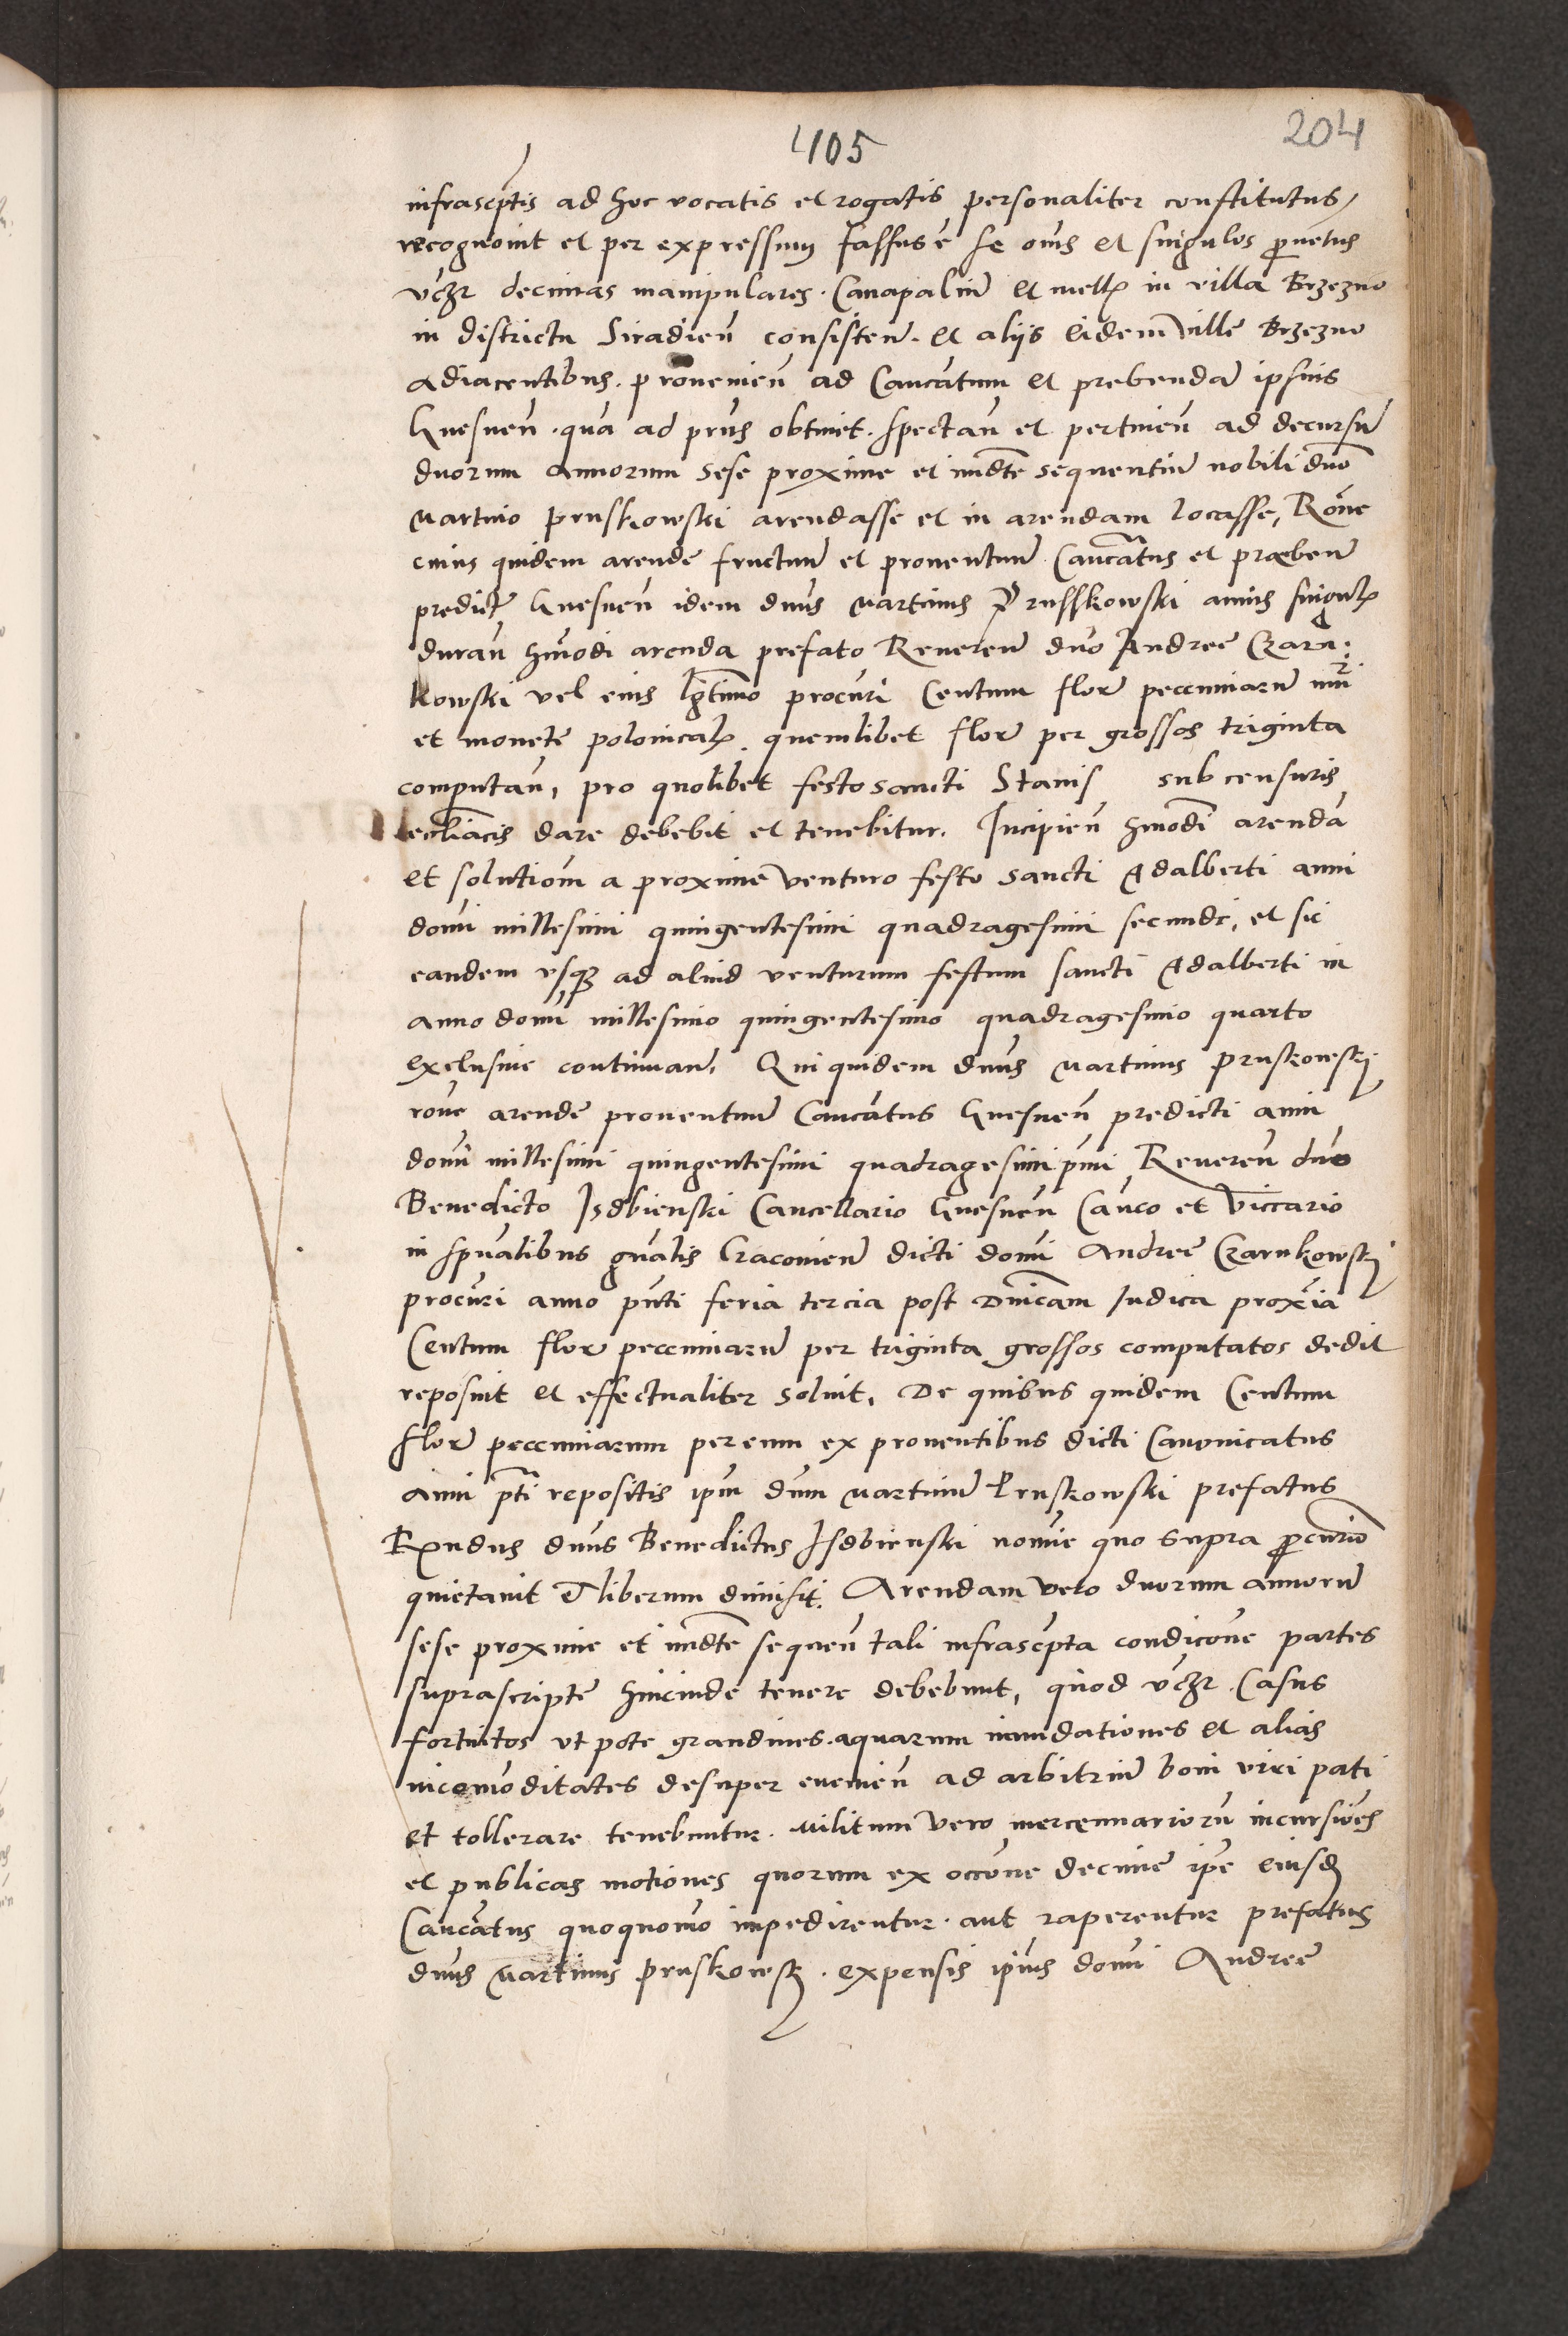 204
405
infrascptis ad hoc vocatis et rogatis personaliter constitutus
recognovit et per expressum fassus e se oms et singulos proventus
vczr decimas manipulares. Canapaliu et mell in villa Brzezno
in districtu Siradien consisten. et aliis eidem ville Brzezno
adiacentibus. provenien ad Canctum et prebenda ipsius
Gnesnen. qua ad prns obtinet. spectan et pertinen ad decursu
duorum annorum sese proxime et imdte sequentiu nobili dno
Martino Pruskowski arendasse et in arendam locasse, Rone
cuius quidem arende fructuu et proventuu Cancatus et præben
predicte Gnesnen idem dnus Martinus Prusskowski annis singul
duran hmodi arenda prefato Reveren dno Andree Czarn:
kowski vel eius lgtimo procuri Centum flor peccuniaru mri
et monete polonical. quemlibet flor per grossos triginta
computan, pro quolibet festo sancti Stanis sub censuris
eccliacis dare debebit et tenebitur. Incipien hmodi arenda
et solutiom a proxime venturo festo sancti Adalberti anni
domi millesimi quingentesimi quadragesimi secundi, et sic
eandem usq ad aliud venturum festum sancti Adalberti in
anno domi millesimo quingentesimo quadragesimo quarto
exclusive continuan. Qui quidem dnus Martinus Pruskowski
rone arende proventuu Cancatus Gnesnen predicti anni
domi millesimi quingentesimi quadragesimi pmi Reveren dno
Benedicto Isdbienski Cancellario Gnesnen Canco et Viccario
in spualibus gnalis Cracovien dicti domi Andree Czarnkowski
procuri anno pnti feria tercia post Dnicam Judica proxia
Centum flor peccuniaru per triginta grossos computatos dedit
reposuit et effectualiter solvit. De quibus quidem Centum
flor peccuniarum per eum ex proventibus dicti Canonicatus
anni pnti repositis ipm dnm Martinu Pruskowski prefatus
Rndus dnus Benedictus Isdbienski nomie quo supra procurio
quietavit et liberum dimisit. Arendam vero duorum annoru
sese proxime et imdte sequen tali infrascpta condicone partes
suprascripte hincinde tenere debebunt, quod vczr Casus
fortuitos ut pote grandines. aquarum inundationes et alias
incomoditates desuper evenien ad arbitriu boni viri pati
et tollerare tenebuntur. Militum vero mercennarioru incursioes
et publicas motiones quorum ex occone decime ipse eiusd
Cancatus quoquomo impedirentur. aut raperentur prefatus
dnus Martinus Pruskowsk. expensis ipius domi Andree